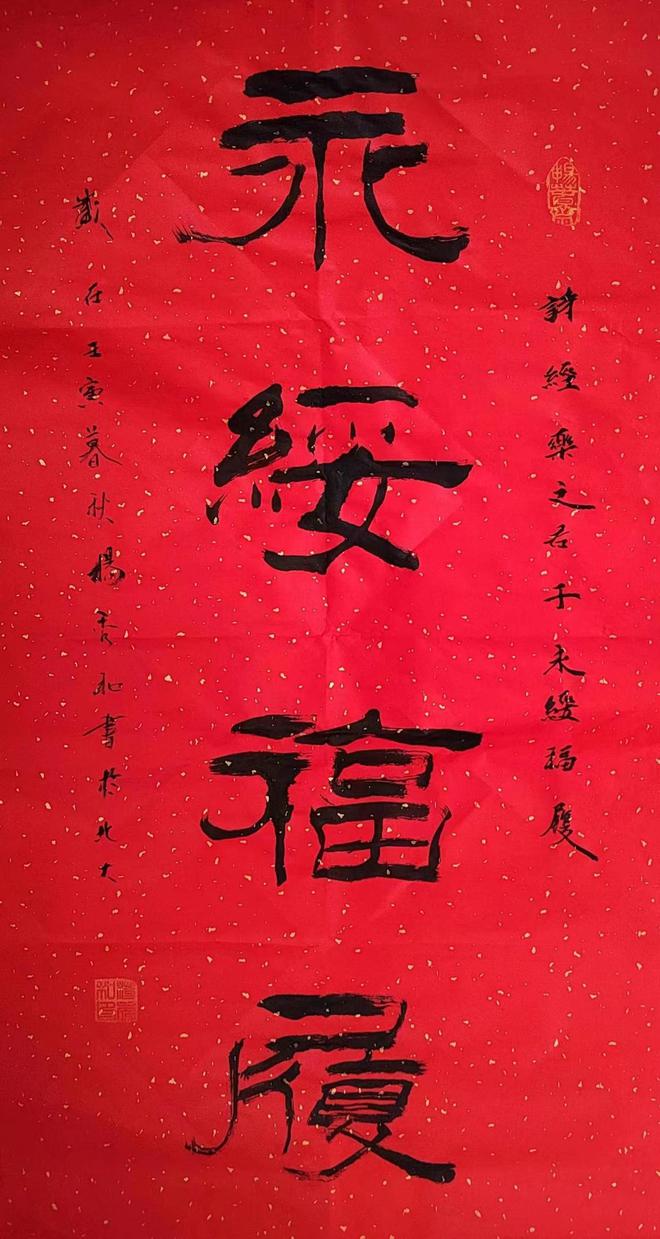 詩經樂之君子永綏福履
永綏福履
歲在壬寅暮秋楊和書於北大